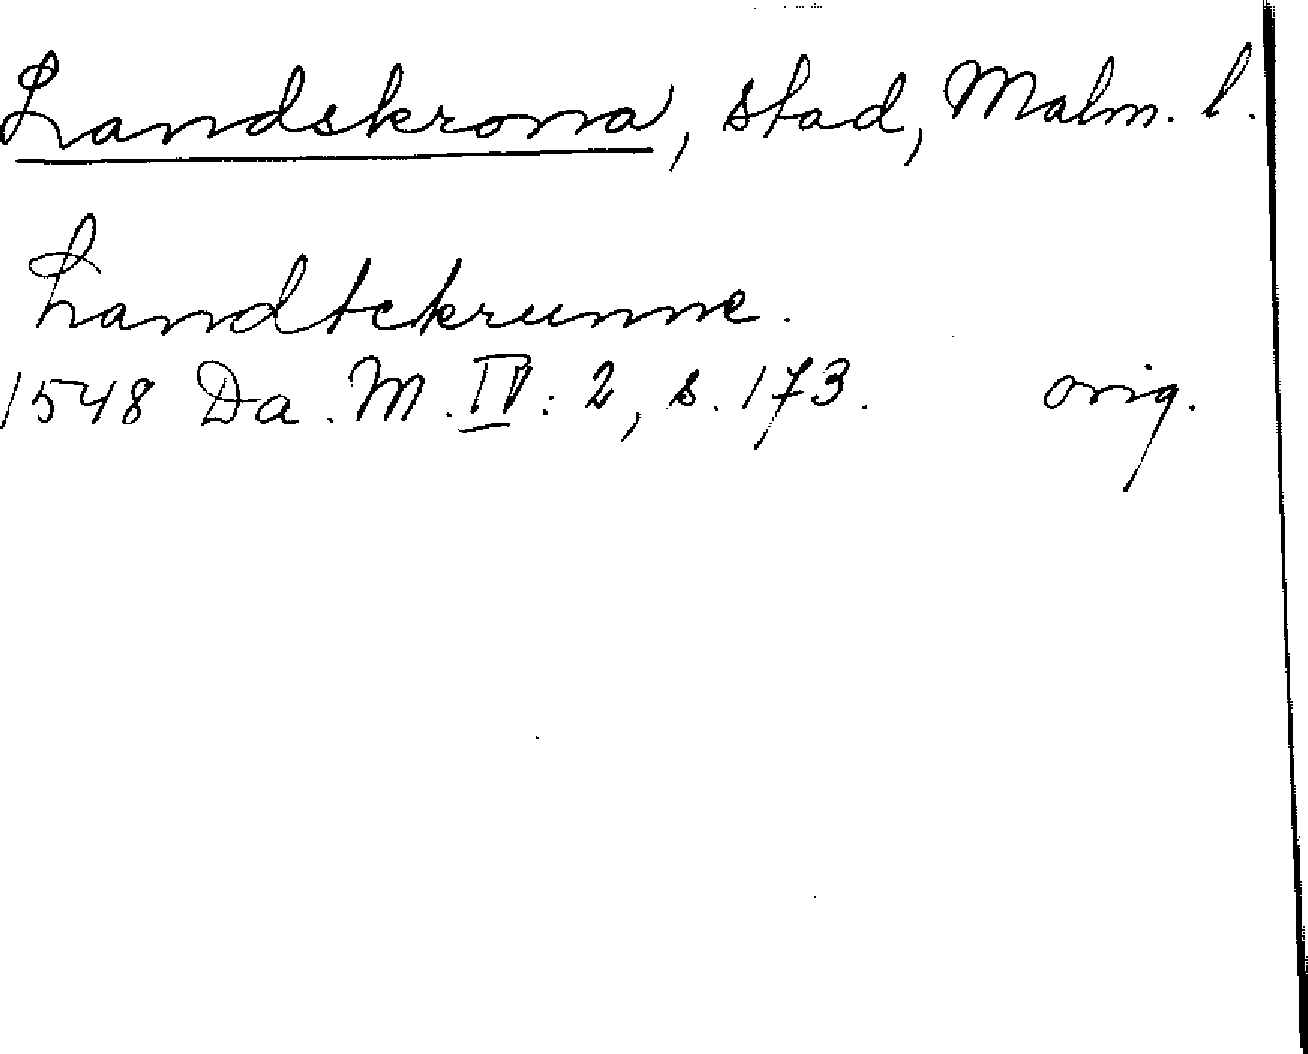 Landskrona, stad, Malm. l.
Landtckrunne.
1548 Da. M. IV: 2, s. 173. orig.